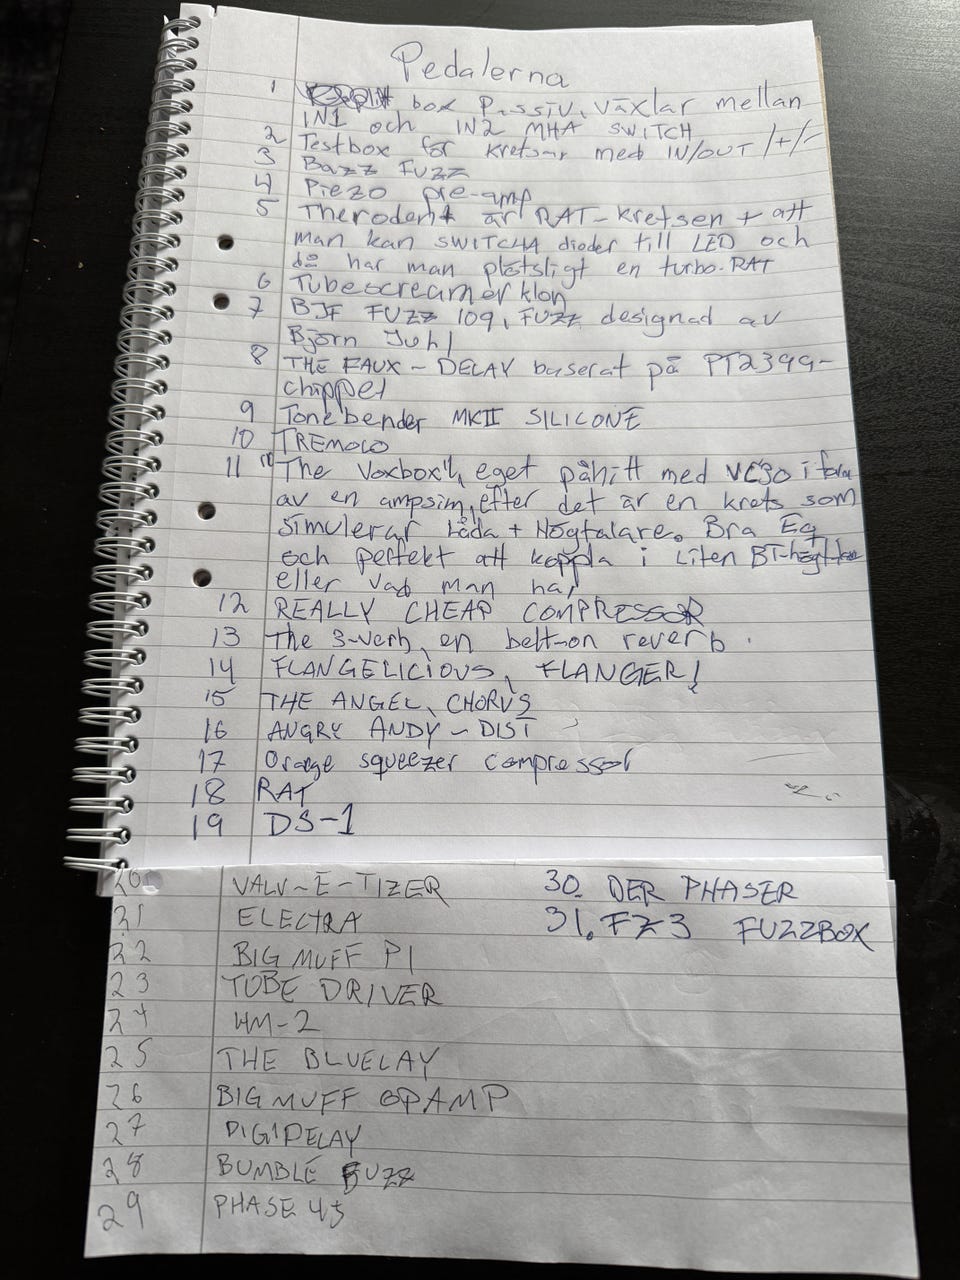 Pedalerna
1 box Passiv, växlar mellan
IN1 och IN2 MHA SWITCH
2 Testbox för kretsar med IN/OUT /+/-
3 Bazz FUZZ
4 Piezo pre-amp
5 Therodent är RAT-kretsen + att
man kan SWITCHA dioder till LED och
då har man plötsligt en turbo-RAT
6 Tubescreamer klon
7 BJF FUZZ 109, FUZZ designad av
Björn Juhl
8 THE FAUX - DELAY baserat på PT2399-
chippet
9 Tonebender MKII SILICONE
10 TREMOLO
11 "The Voxbox", eget påhitt med VC30 i form
av en ampsim, efter det är en krets som
simulerar Låda + Högtalare. Bra EQ
och perfekt att koppla i Liten
eller vad man har
12 REALLY CHEAP COMPRESSOR
13 The 3-verb, en belt-on reverb.
14 FLANGELICIOUS, FLANGER!
15 THE ANGEL, CHORUS
16 ANGRY ANDY - DIST
17 Orange squeezer compressor
18 RAT
19 DS-1
20 VALV-E-TIZER 30. DER PHASER
21 ELECTRA 31. FZ3 FUZZBOX
22 BIG MUFF PI
23 TUBE DRIVER
24 HM-2
25 THE BLUELAY
26 BIG MUFF OPAMP
27 DIGIDELAY
28 BUMBLE FUZZ
29 PHASE 45